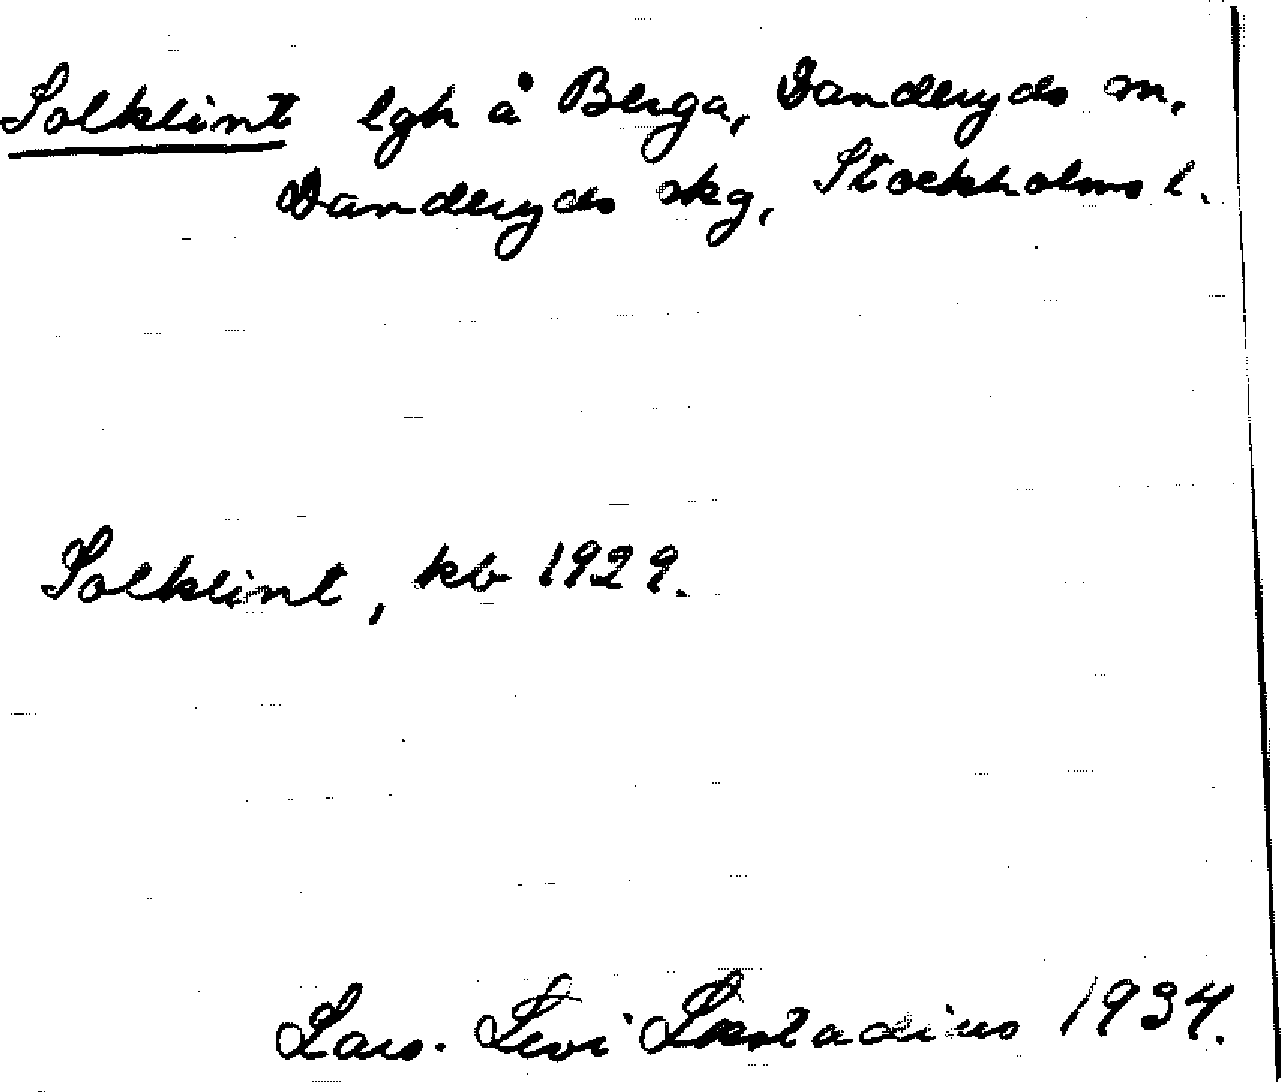 Solklint lgh å Berga, Danderyds m.
Danderyds skg, Stockholms l.
Solklint, kb 1929.
Lars-Levi Læstadius 1934.